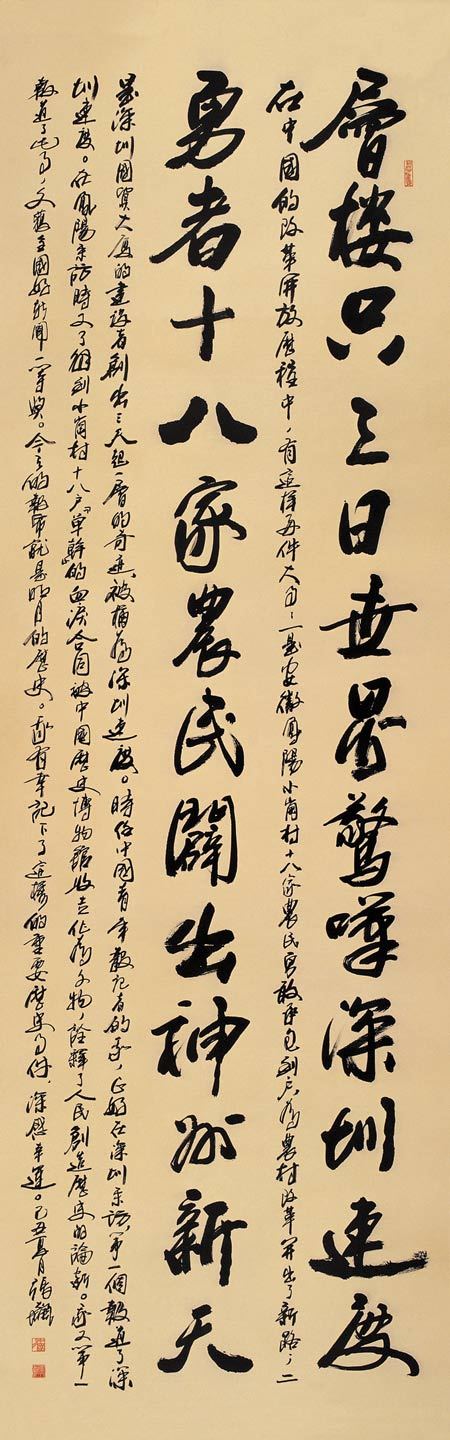 層楼只三日世界驚嘩深圳速度
在中國的改革開放歷程中，有這樣兩件大事，一是安徽鳳陽小崗村十八家農民勇敢承包到户為農村改革開出了新路，二
勇者十八家農民闢出神州新天
是深圳國貿大廈的建設者創出三天起一層的奇迹，被稱為深圳速度。時任中國青年報記者的我，正好在深圳采訪，第一個報道了深
圳速度。在鳳陽采訪時又了解到小崗村十八户“單幹”的血淚合同被中國歷史博物館收去作為文物，詮釋了人民創造歷史的論斷。我又第一
報道了此事，文獲全國好新聞二等奬。今天的報章就是明日的歷史。我有幸記下了這樣的重要歷史事件，深感幸運。己丑夏月張飆